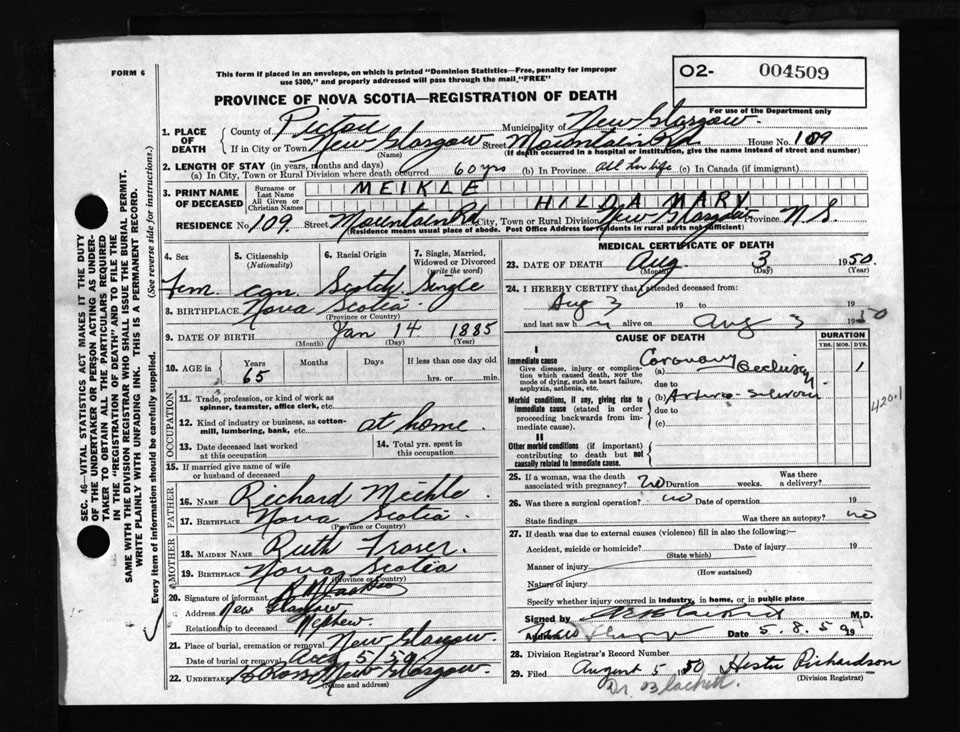 FORM 6
This form if placed in an envelope, on which is printed "Dominion Statistics—Free, penalty for improper
use $300," and properly addressed will pass through the mail, "FREE"
O2- 004509
For use of the Department only
PROVINCE OF NOVA SCOTIA—REGISTRATION OF DEATH
1. PLACE OF DEATH
County of Pictou Municipality of New Glasgow.
If in City or Town New Glasgow Street Mountain Rd House No. 109
(Name) (If death occurred in a hospital or institution, give the name instead of street and number)
2. LENGTH OF STAY (in years, months and days)
(a) In City, Town or Rural Division where death occurred 60 yrs (b) In Province All her life (c) In Canada (if immigrant)
3. PRINT NAME OF DECEASED
Surname or Last Name MEIKLE
All Given or Christian Names HILDA MARY
RESIDENCE No 109. Street Mountain Rd City, Town or Rural Division New Glasgow Province N.S.
(Residence means usual place of abode. Post Office Address for residents in rural parts not sufficient)
4. Sex 5. Citizenship (Nationality) 6. Racial Origin 7. Single, Married, Widowed or Divorced (write the word)
Fem. can. Scotch Single
8. BIRTHPLACE Nova Scotia.
(Province or Country)
9. DATE OF BIRTH Jan 14 1885
(Month) (Day) (Year)
10. AGE in Years Months Days If less than one day old
65 hrs. or min.
OCCUPATION
11. Trade, profession, or kind of work as spinner, teamster, office clerk, etc.
12. Kind of industry or business, as cotton-mill, lumbering, bank, etc. at home.
13. Date deceased last worked at this occupation 14. Total yrs. spent in this occupation
15. If married give name of wife or husband of deceased
FATHER
16. NAME Richard Meikle.
17. BIRTHPLACE Nova Scotia
(Province or Country)
MOTHER
18. MAIDEN NAME Ruth Fraser.
19. BIRTHPLACE Nova Scotia
(Province or Country)
20. Signature of informant
Address New Glasgow
Relationship to deceased Nephew.
21. Place of burial, cremation or removal New Glasgow.
Date of burial or removal Aug 5 50
22. Undertaker Ross New Glasgow.
(Name and address)
MEDICAL CERTIFICATE OF DEATH
23. DATE OF DEATH Aug 3 1950.
(Month) (Day) (Year)
24. I HEREBY CERTIFY that I attended deceased from:
Aug 3 19 to 19
and last saw h alive on Aug 3 1950
CAUSE OF DEATH DURATION
YRS. MOS. DYS.
I
Immediate cause
Give disease, injury or complication which caused death, not the mode of dying, such as heart failure, asphyxia, asthenia, etc.
(a) Coronary Occlusion 1
due to
Morbid conditions, if any, giving rise to immediate cause (stated in order proceeding backwards from immediate cause).
(b)
due to
(c)
420.1
II
Other morbid conditions (if important) contributing to death but not causally related to immediate cause.
25. If a woman, was the death associated with pregnancy? no Duration weeks. Was there a delivery?
26. Was there a surgical operation? no Date of operation 19
State findings Was there an autopsy? no
27. If death was due to external causes (violence) fill in also the following:—
Accident, suicide or homicide? Date of injury 19
(State which)
Manner of injury
(How sustained)
Nature of injury
Specify whether injury occurred in industry, in home, or in public place
Signed by M.D.
Address Date 5.8.59 19
28. Division Registrar's Record Number
29. Filed August 5 1950 Hester Richardson
(Division Registrar)
Dr. Blackett.
SEC. 46—VITAL STATISTICS ACT MAKES IT THE DUTY
OF THE UNDERTAKER OR PERSON ACTING AS UNDER-
TAKER TO OBTAIN ALL THE PARTICULARS REQUIRED
IN THE "REGISTRATION OF DEATH" AND TO FILE THE
SAME WITH THE DIVISION REGISTRAR WHO SHALL ISSUE THE BURIAL PERMIT.
WRITE PLAINLY WITH UNFADING INK. THIS IS A PERMANENT RECORD.
Every item of information should be carefully supplied. (See reverse side for instructions.)